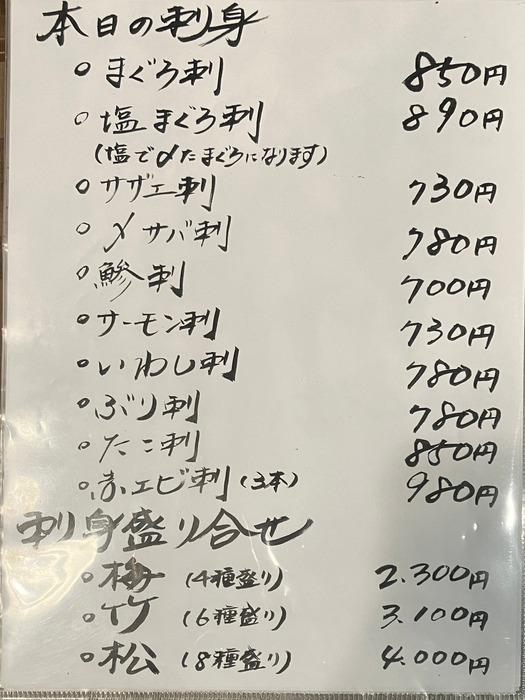 本日の刺身
○ まぐろ刺 850円
○ 塩まぐろ刺 890円
(塩で〆たまぐろになります)
○ サザエ刺 730円
○ 〆サバ刺 780円
○ 鰺刺 700円
○ サーモン刺 730円
○ いわし刺 780円
○ ぶり刺 780円
○ たこ刺 850円
○ 赤エビ刺(3本) 980円
刺身盛り合せ
○ 梅 (4種盛り) 2.300円
○ 竹 (6種盛り) 3.100円
○ 松 (8種盛り) 4.000円